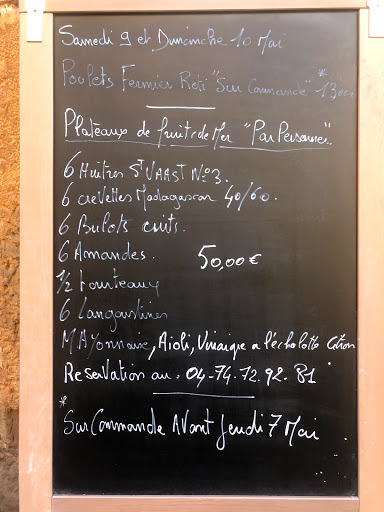 Samedi 9 et Dimanche 10 Mai
Poulets Fermier Rôti "Sur Commande" * 13
Plateaux de fruits de Mer "Par Personne".
6 Huitres St VAAST N°3.
6 crevettes Madagascar 40/60.
6 Bulots cuits.
6 Amandes. 50,00€
1/2 tourteaux
6 Langoustines
MAYonnaise, Aioli, Vinaigre a l'échalotte Citron
Reservation au. 04-74-72.92.81
* Sur Commande Avant Jeudi 7 Mai